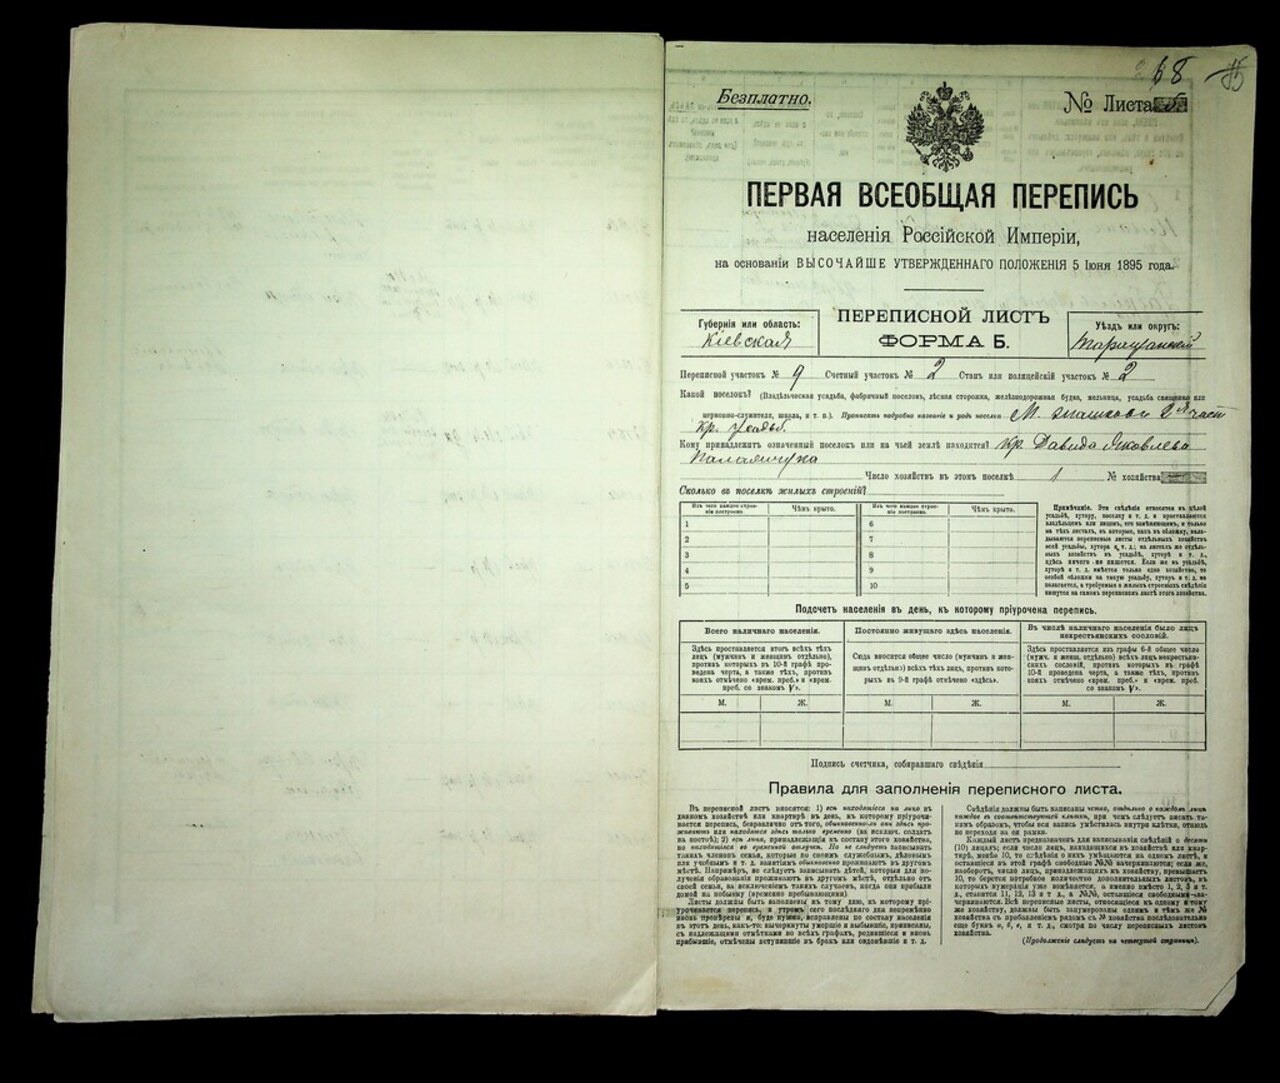 68
Безплатно.
№ Листа
ПЕРВАЯ ВСЕОБЩАЯ ПЕРЕПИСЬ
населенія Россійской Имперіи,
на основаніи ВЫСОЧАЙШЕ УТВЕРЖДЕННАГО ПОЛОЖЕНІЯ 5 Іюня 1895 года.
Губернія или область:
Кіевская
ПЕРЕПИСНОЙ ЛИСТЪ
ФОРМА Б.
Уѣздъ или округъ:
Таращанскій
Переписной участокъ № 9 Счетный участокъ № 2 Станъ или полицейскій участокъ № 2
Какой поселокъ? (Владѣльческая усадьба, фабричный поселокъ, лѣсная сторожка, желѣзнодорожная будка, мельница, усадьба священно или
церковно-служителя, школа, и т. п.). Прописать подробно названіе и родъ поселка М. 2я часть
Кр. усадьб.
Кому принадлежитъ означенный поселокъ или на чьей землѣ находится? Кр. Давида Яковлева
Паламчука
Число хозяйствъ въ этомъ поселкѣ 1 № хозяйства
Сколько въ поселкѣ жилыхъ строеній?
Изъ чего каждое строеніе построено. Чѣмъ крыто. Изъ чего каждое строеніе построено. Чѣмъ крыто.
1 6
2 7
3 8
4 9
5 10
Примѣчаніе. Эти свѣдѣнія относятся къ цѣлой
усадьбѣ, хутору, поселку и т. д. и проставляются
владѣльцемъ или лицомъ, его замѣняющимъ, и только
на тѣхъ листахъ, въ которые, какъ въ обложку, вкладываются переписные листы отдѣльныхъ хозяйствъ
всей усадьбы, хутора и т. д.; на листахъ же отдѣльныхъ хозяйствъ въ усадьбѣ, хуторѣ и т. д.,
здѣсь ничего не пишется. Если же въ усадьбѣ,
хуторѣ и т. д. имѣется только одно хозяйство, то
особой обложки на такую усадьбу, хуторъ и т. д. не
полагается, а требуемыя о жилыхъ строеніяхъ свѣдѣнія
пишутся на самомъ переписномъ листѣ этого хозяйства.
Подсчетъ населенія въ день, къ которому пріурочена перепись.
Всего наличнаго населенія.
Здѣсь проставляется итогъ всѣхъ тѣхъ
лицъ (мужчинъ и женщинъ отдѣльно),
противъ которыхъ въ 10-й графѣ проведена черта, а также тѣхъ, противъ
коихъ отмѣчено «врем. преб.» и «врем.
преб. со знакомъ V».
Постоянно живущаго здѣсь населенія.
Сюда вносится общее число (мужчинъ и женщинъ отдѣльно) всѣхъ тѣхъ лицъ, противъ которыхъ въ 9-й графѣ отмѣчено «здѣсь».
Въ числѣ наличнаго населенія было лицъ
некрестьянскихъ сословій.
Здѣсь проставляется изъ графы 6-й общее число
(мужч. и женщ. отдѣльно) всѣхъ лицъ некрестьянскихъ сословій, противъ которыхъ въ графѣ
10-й проведена черта, а также тѣхъ, противъ
коихъ отмѣчено «врем. преб.» и «врем. преб.
со знакомъ V».
М. Ж. М. Ж. М. Ж.
Подпись счетчика, собиравшаго свѣдѣнія
Правила для заполненія переписного листа.
Въ переписной листъ вносятся: 1) всѣ находящіеся на лицо въ
данномъ хозяйствѣ или квартирѣ въ день, къ которому пріурочивается перепись, безразлично отъ того, обыкновенно-ли они здѣсь проживаютъ или находятся здѣсь только временно (за исключ. солдатъ
на постоѣ); 2) всѣ лица, принадлежащія къ составу этого хозяйства,
но находящіяся во временной отлучкѣ. Но не слѣдуетъ записывать
такихъ членовъ семьи, которые по своимъ служебнымъ, дѣловымъ
или учебнымъ и т. д. занятіямъ обыкновенно проживаютъ въ другомъ
мѣстѣ. Напримѣръ, не слѣдуетъ записывать дѣтей, которыя для полученія образованія проживаютъ въ другомъ мѣстѣ, отдѣльно отъ
своей семьи, за исключеніемъ такихъ случаевъ, когда они прибыли
домой на побывку (временно пребывающими).
Листы должны быть заполнены къ тому дню, къ которому пріурочивается перепись, и утромъ сего послѣдняго дня непремѣнно
вновь провѣрены и, буде нужно, исправлены по составу населенія
въ этотъ день, какъ-то: вычеркнуты умершіе и выбывшіе, приписаны,
съ надлежащими отмѣтками во всѣхъ графахъ, родившіеся и вновь
прибывшіе, отмѣчены вступившіе въ бракъ или овдовѣвшіе и т. д.
Свѣдѣнія должны быть записаны четко, отдѣльно о каждомъ лицѣ
каждое въ соотвѣтствующей клѣткѣ, при чемъ слѣдуетъ писать такимъ образомъ, чтобы вся запись умѣстилась внутри клѣтки, отнюдь
не переходя за ея рамки.
Каждый листъ предназначенъ для записыванія свѣдѣній о десяти
(10) лицахъ; если число лицъ, находящихся въ хозяйствѣ или квартирѣ, менѣе 10, то свѣдѣнія о нихъ умѣщаются на одномъ листѣ, и
оставшіеся въ этой графѣ свободные №№ зачеркиваются; если же,
наоборотъ, число лицъ, принадлежащихъ къ хозяйству, превышаетъ
10, то берется потребное количество дополнительныхъ листовъ, въ
которыхъ нумерація уже измѣняется, а именно вмѣсто 1, 2, 3 и т.
д., ставится 11, 12, 13 и т. д., а №№, оставшіеся свободными—зачеркиваются. Всѣ переписные листы, относящіеся къ одному и тому
же хозяйству, должны быть занумерованы однимъ и тѣмъ же №
хозяйства съ прибавленіемъ рядомъ съ № хозяйства послѣдовательно
еще буквъ а, б, в, и т. д., смотря по числу переписныхъ листовъ
хозяйства.
(Продолженіе слѣдуетъ на четвертой страницѣ).